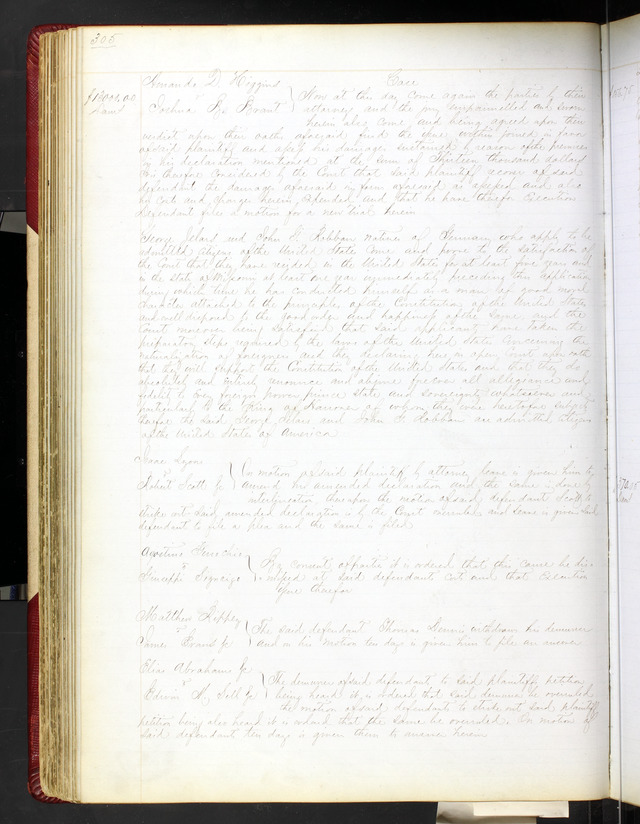 305
Amanda D. Higgins Case
Joshua B. Brant Now at this day come again the parties by their
attorneys and the jury empannelled and sworn
herein also come, and being agreed upon their
verdict upon their oaths aforesaid find the issue within joined in favor
of said plaintiff and assess his damages sustained by reason of the premises
in his declaration mentioned at the sum of Thirteen thousand dollars
It is therefore considered by the Court that said plaintiff recover of said
defendant the damages aforesaid in form aforesaid assessed and also
his costs and charges herein expended and that he have therefor Execution
Defendant files a motion for a new trial herein
George and John H. natives of Germany who apply to be
admitted citizens of the United States Come and prove to the satisfaction of
the Court that they have resided in the United States at least five years and
in the state of Missouri at least one year immediately preceding this application
during which time he has conducted himself as a man of good moral
character attached to the principles of the Constitution of the United States
and well disposed to the good order and happiness of the same and the
Court moreover being satisfied that said applicants have taken the
preparatory steps required by the laws of the United States concerning the
naturalization of foreigners and they declaring here in open Court upon oath
that they will support the Constitution of the United States and that they do
absolutely and entirely renounce and abjure forever all allegiance and
fidelity to every foreign power prince State and sovereignty whatsoever and
particularly to the King of Hanover of whom they were heretofore subjects
therefore the said George and John H. are admitted citizens
of the United States of America
Isaac Lyon
vs
Robert Scott Jr On motion of said plaintiff by attorney leave is given him to
amend his amended declaration and the same is done by
interlineation thereupon the motion of said defendant Scott to
strike out said amended declaration is by the Court overruled and leave is given said
defendant to file a plea and the same is filed
vs
Giuseppe By consent of parties it is ordered that this cause be dis-
missed at said defendants costs and that Execution
issue therefor
Matthew Rippey
vs
James Evans Jr The said defendant Thomas withdraws his demurrer
and on his motion ten days is given him to file an answer
Elias Abraham Jr
vs
Edwin H. The demurrer of said defendant to said plaintiffs petition
being heard it is ordered that said demurrer be overruled
the motion of said defendants to strike out said plaintiffs
petition being also heard it is ordered that the same be overruled. On motion of
said defendant ten days is given them to answer herein